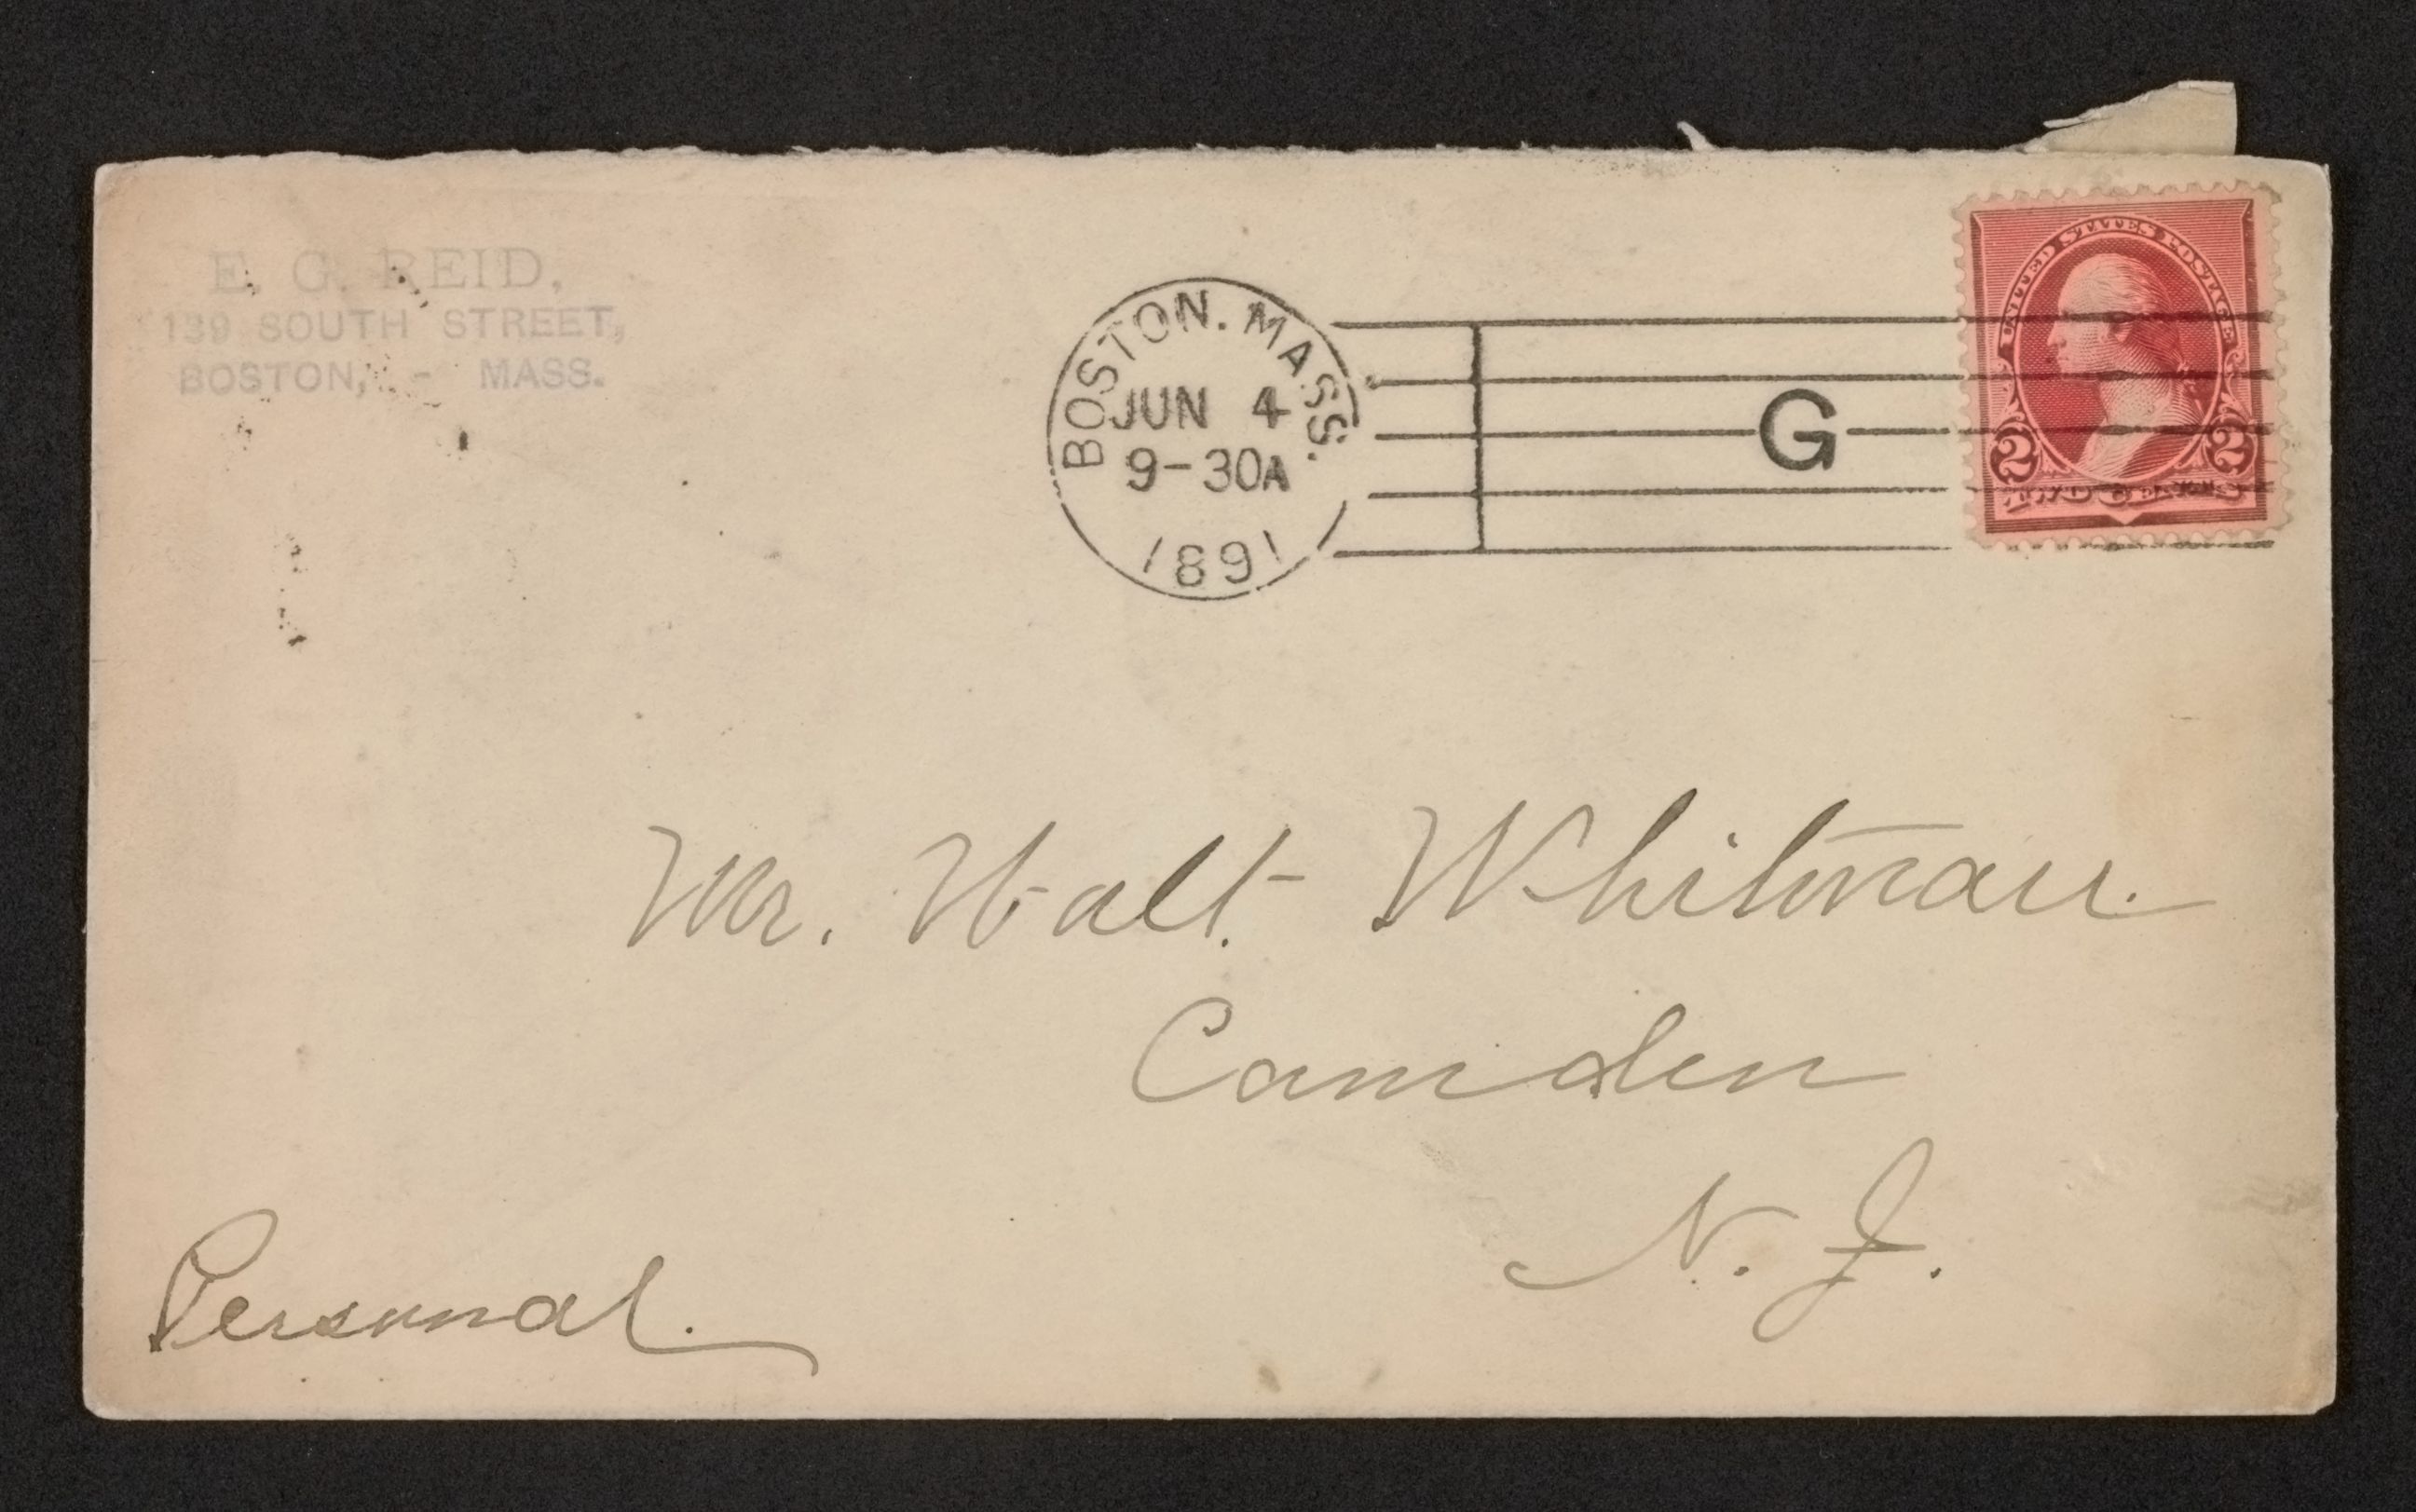 E. G. REID,
139 SOUTH STREET,
BOSTON, - MASS.
BOSTON. MASS.
JUN 4
9-30A
1891
G
UNITED STATES POSTAGE
2 2
TWO CENTS
Mr. Walt Whitman.
Camden
N. J.
Personal.